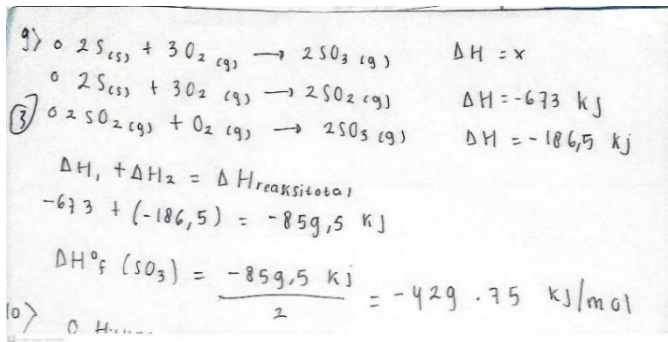 9> o 2S(s) + 3O2 (g) → 2SO3 (g) ΔH = x
o 2S(s) + 3O2 (g) → 2SO2 (g) ΔH = -673 kJ
③ o 2SO2 (g) + O2 (g) → 2SO3 (g) ΔH = -186,5 kj
ΔH1 + ΔH2 = ΔHreaksitotal
-673 + (-186,5) = -859,5 KJ
ΔH°f (SO3) = -859,5 kj / 2 = -429.75 kJ/mol
10> o